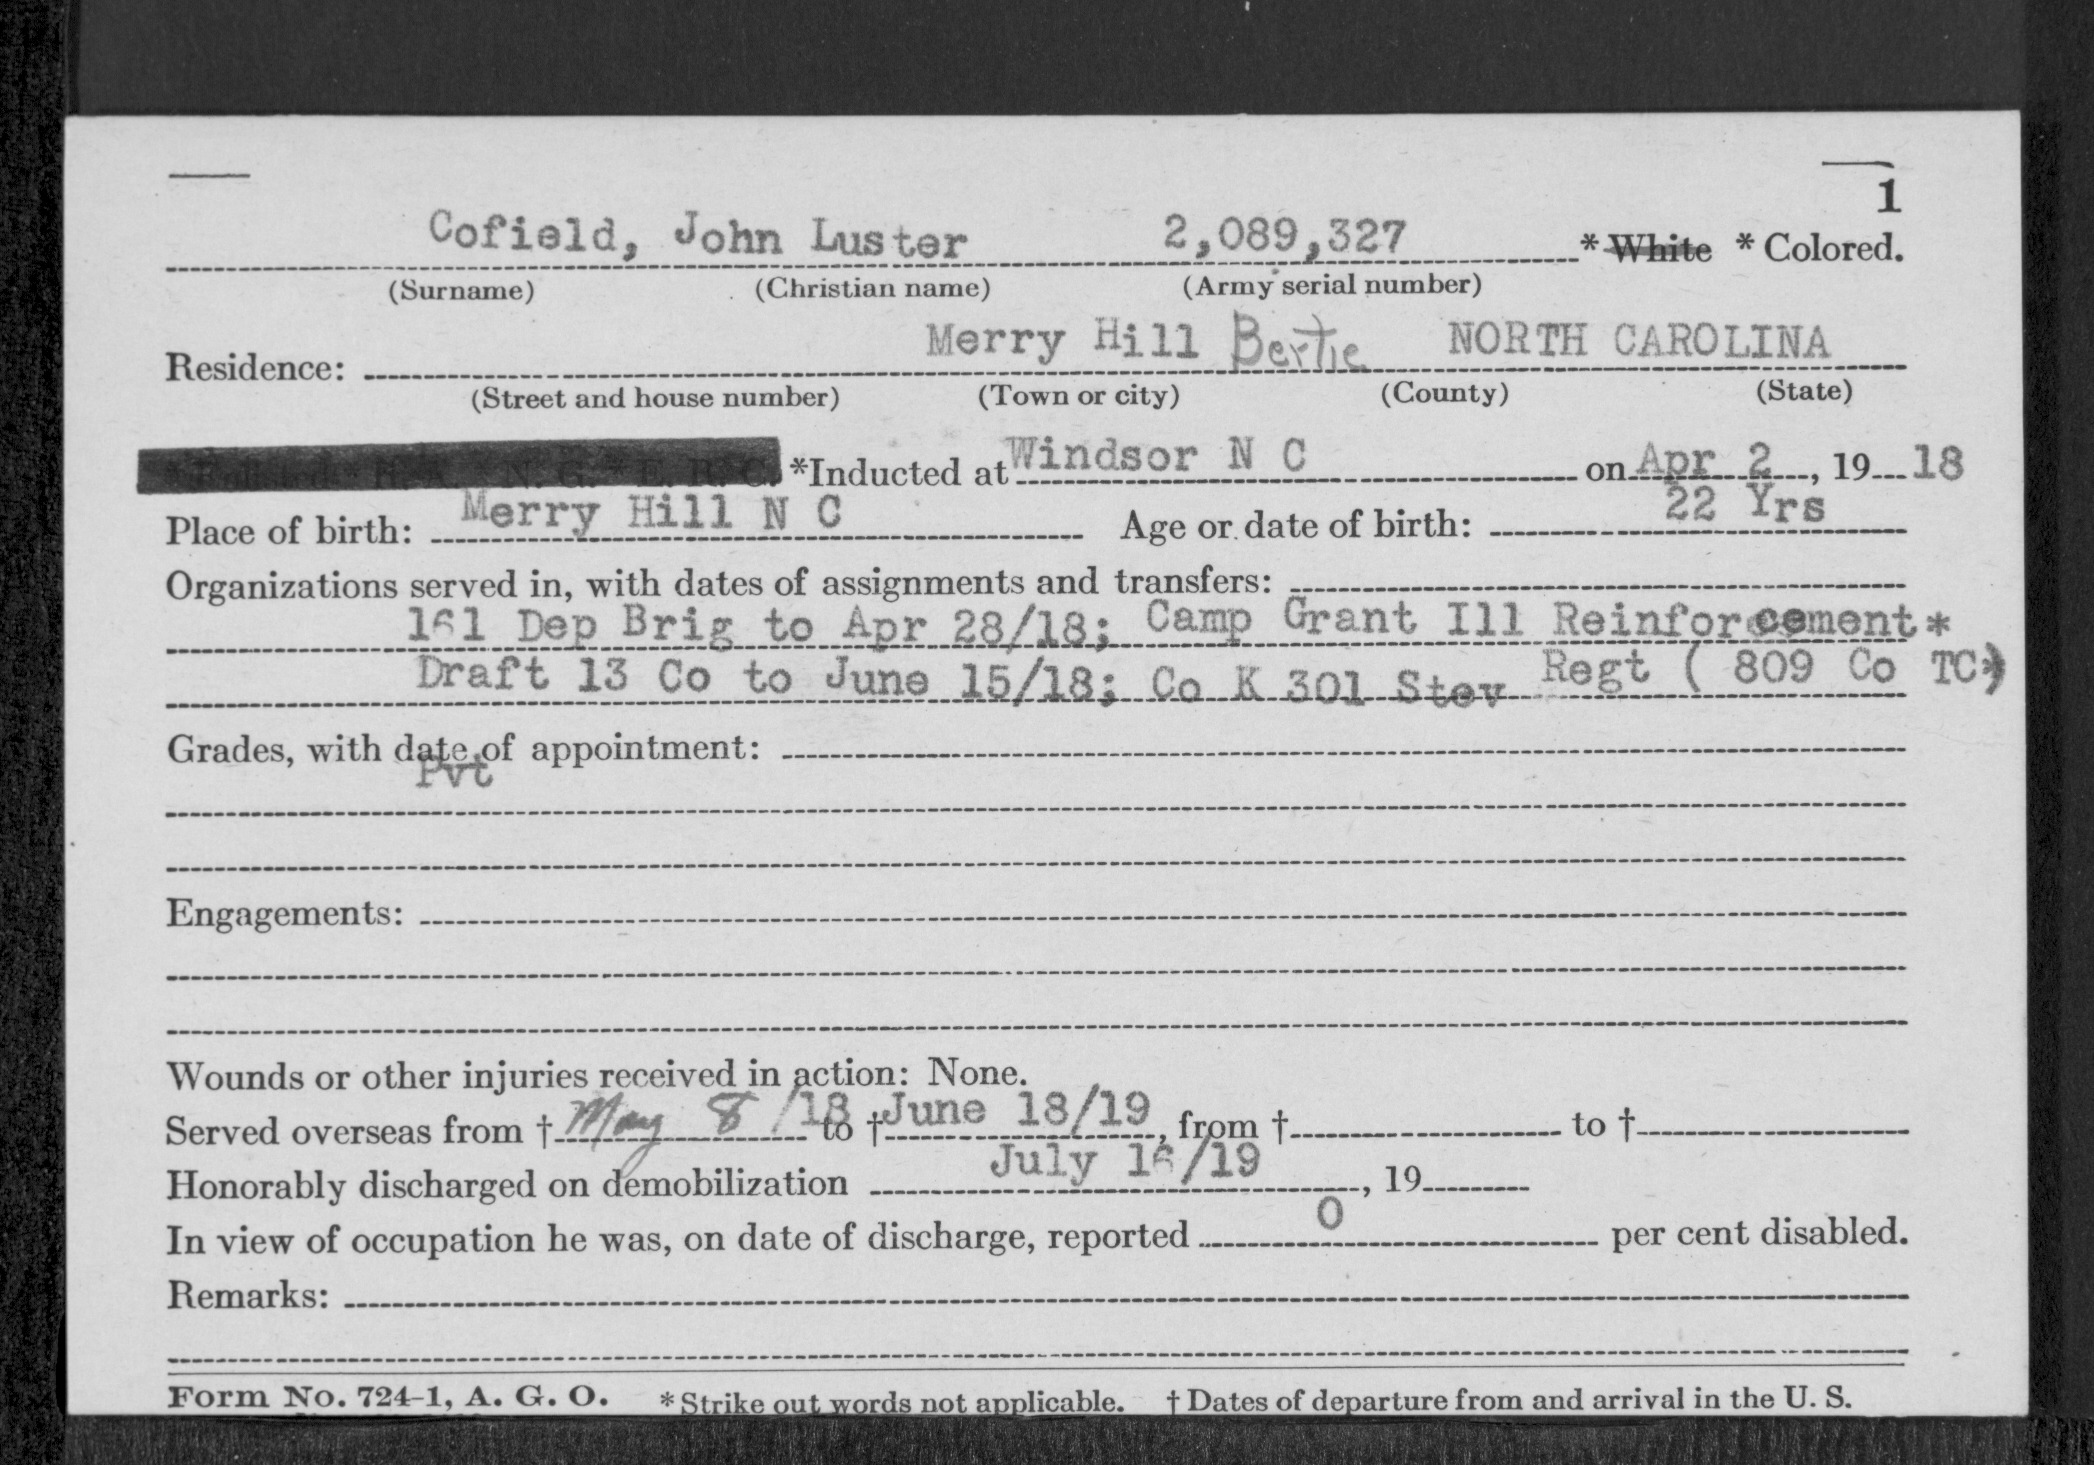 1
Cofield, John Luster 2,089,327 * White * Colored.
(Surname) (Christian name) (Army serial number)
Merry Hill Bertie NORTH CAROLINA
Residence:
(Street and house number) (Town or city) (County) (State)
*Enlisted R. A. N. G. * E. R. C. *Inducted at Windsor N C on Apr 2, 19 18
Place of birth: Merry Hill N C Age or date of birth: 22 Yrs
Organizations served in, with dates of assignments and transfers:
161 Dep Brig to Apr 28/18; Camp Grant Ill Reinforcement*
Draft 13 Co to June 15/18; Co K 301 Stev Regt ( 809 Co TC)
Grades, with date of appointment:
Pvt
Engagements:
Wounds or other injuries received in action: None.
Served overseas from † May 8 /18 to † June 18/19, from † to †
Honorably discharged on demobilization July 16/19, 19
In view of occupation he was, on date of discharge, reported 0 per cent disabled.
Remarks:
Form No. 724-1, A. G. O. *Strike out words not applicable. † Dates of departure from and arrival in the U. S.